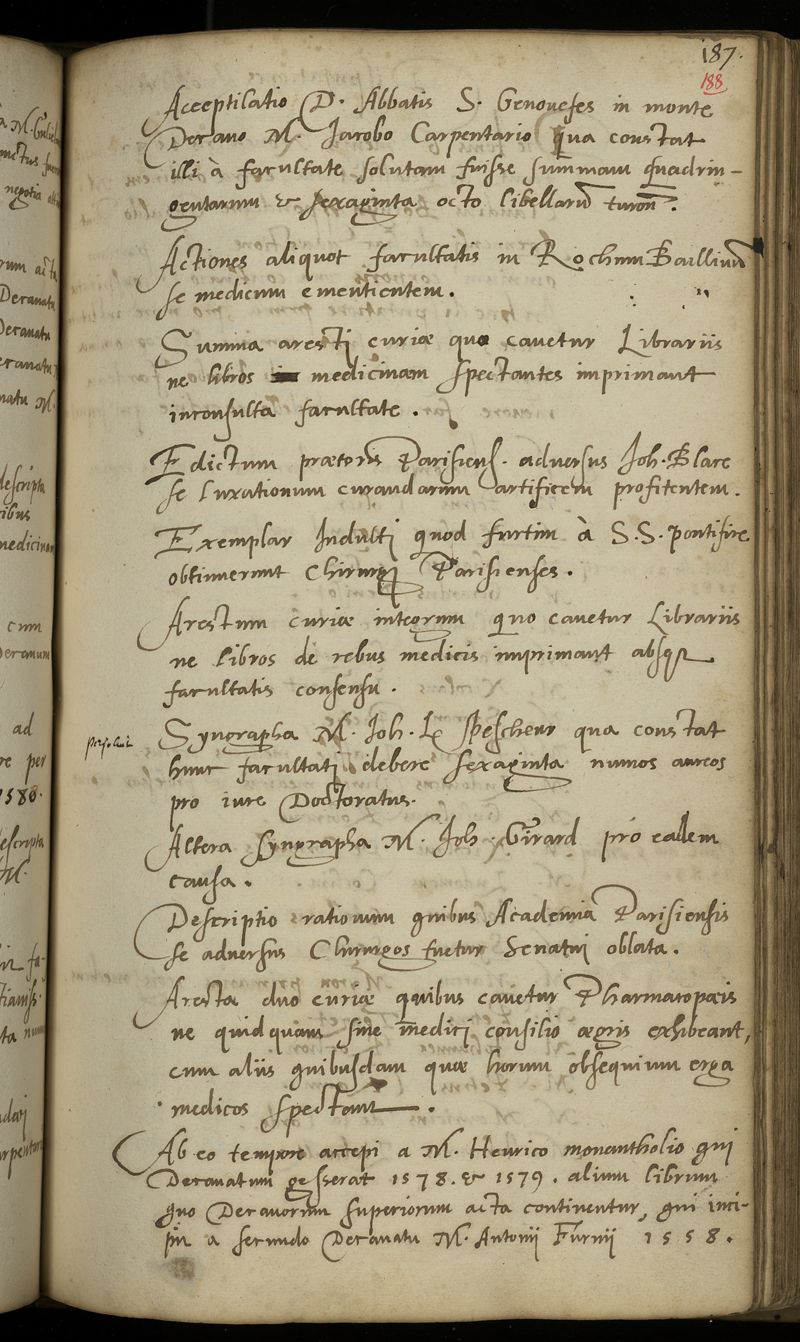 187.
188
Acceptilatio D. Abbatis S. Genouefes in monte
Decano M. Jacobo Carpentario qua constat
illi à facultate solutam fuisse summam quadrin-
gentarum & sexaginta octo libellarū turon̄.
Actiones aliquot facultatis in Rochum Bailliuū
se medicum ementientem.
Summa aresti curiæ quo cauetur Librariis
ne libros medicinam spectantes imprimant
inconsulta facultate.
Edictum prætoris Parisiens. aduersus Joh. Blare
se luxationum curandarum artificem profitentem.
Exemplar Indulti quod furtim à S.S. pontifice
obtinuerunt Chirurgi Parisienses.
Arestum curiæ integrum quo cauetur Librariis
ne libros de rebus medicis imprimant absq
facultatis consensu.
Syngrapha M. Joh. Le Pescheur qua constat
hunc facultati debere sexaginta numos aureos
pro iure Doctoratus.
Altera syngrapha M. Joh. Girard pro eadem
causa.
Descriptio rationum quibus Academia Parisiensis
se aduersus Chirurgos tuetur Senatui oblata.
Aresta duo curiæ quibus cauetur Pharmacopœis
ne quidquam sine medici consilio ægris exhibeant,
cum aliis quibusdam quæ horum obsequium erga
medicos spectant.
Ab eo tempore accepi a M. Henrico monantholio qui
Decanatum gesserat 1578. & 1579. alium librum
quo Decanorum superiorum acta continentur, qui inci-
pit a secundo Decanatu M. Antonij Furnij 1558.